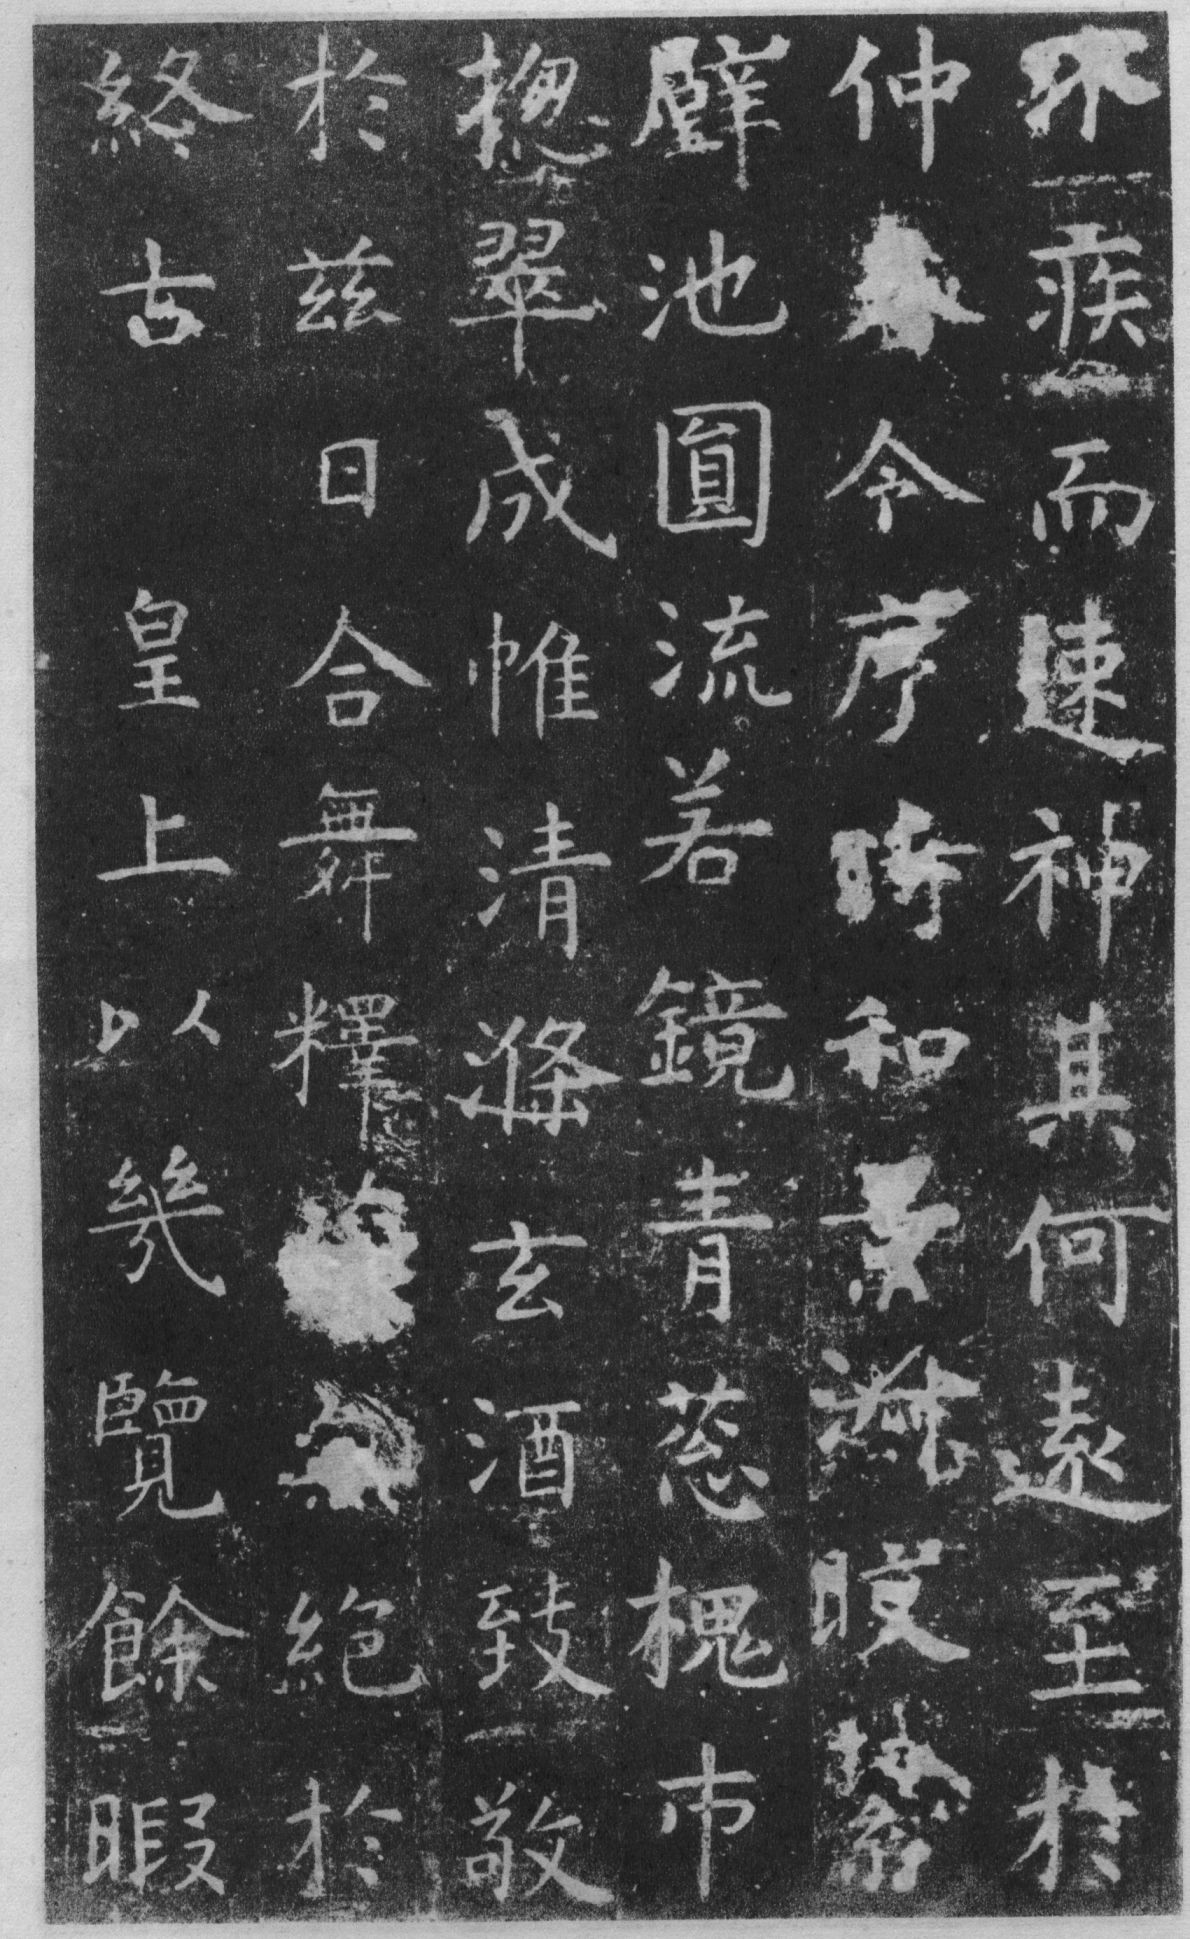 不疾而速神其何遠至於
仲春令序時和景淑晈絜
璧池圓流若鏡青葱槐市
揔翠成帷清滌玄酒致敬
於兹日合舞釋無絕於
終古 皇上以幾覽餘暇